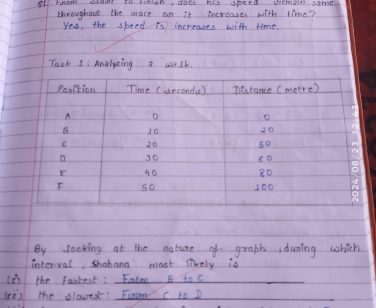 Q1 From start to finish, does his speed remain same
throughout the race or it increases with time?
Yes, the speed is increases with time.
Task 1: Analyzing a walk.
Position Time (seconds) Distance (metre)
A 0 0
B 10 20
C 20 50
D 30 60
E 40 80
F 50 100
2024/08/23 12:43
By looking at the nature of graph, during which
interval, Shabana most likely is
(i) the fastest: From B to C
(ii) the slowest: From C to D